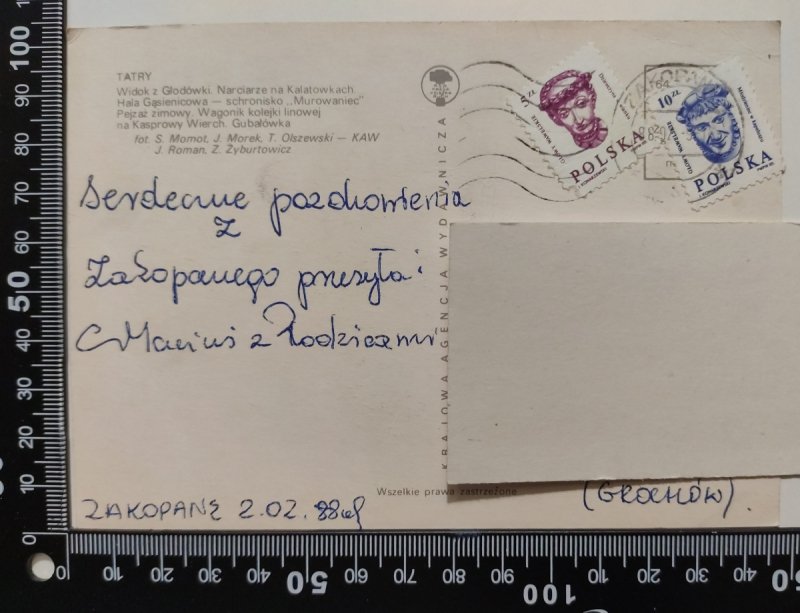 TATRY
Widok z Głodówki. Narciarze na Kalatówkach
Hala Gąsienicowa — schronisko „Murowaniec"
Pejzaż zimowy. Wagonik kolejki linowej
na Kasprowy Wierch. Gubałówka
fot. S. Momot, J. Morek, T. Olszewski — KAW
J. Roman, Z. Żyburtowicz
Serdeczne pozdrowienia
z
Zakopanego przesyła:
Maciuś z Rodzicami
ZAKOPANE 2.02.88
KRAJOWA AGENCJA WYDAWNICZA
Wszelkie prawa zastrzeżone
5 ZŁ
POLSKA
10 ZŁ
POLSKA
ZAKOPANE
(GROCHÓW).
100
90
80
70
60
50
40
30
20
10
0
0
10
20
30
40
50
60
70
80
90
100
10
20
30
40